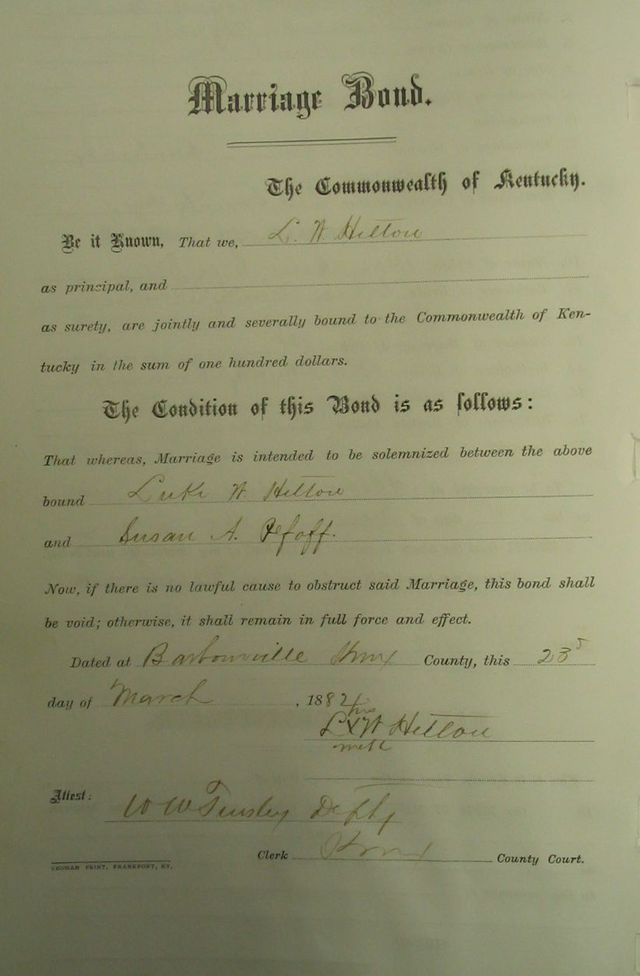 Marriage Bond.
The Commonwealth of Kentucky.
Be it Known, That we, L. W. Hilton
as principal, and
as surety, are jointly and severally bound to the Commonwealth of Ken-
tucky in the sum of one hundred dollars.
The Condition of this Bond is as follows:
That whereas, Marriage is intended to be solemnized between the above
bound Luke W Hilton
and Susan A. Pfoff.
Now, if there is no lawful cause to obstruct said Marriage, this bond shall
be void; otherwise, it shall remain in full force and effect.
Dated at Barbourville Knox County, this 23
day of March, 1882
his
L X W Hilton
Attest: W W Tinsley Depty
Clerk Knox County Court.
YEOMAN PRINT, FRANKFORT, KY.